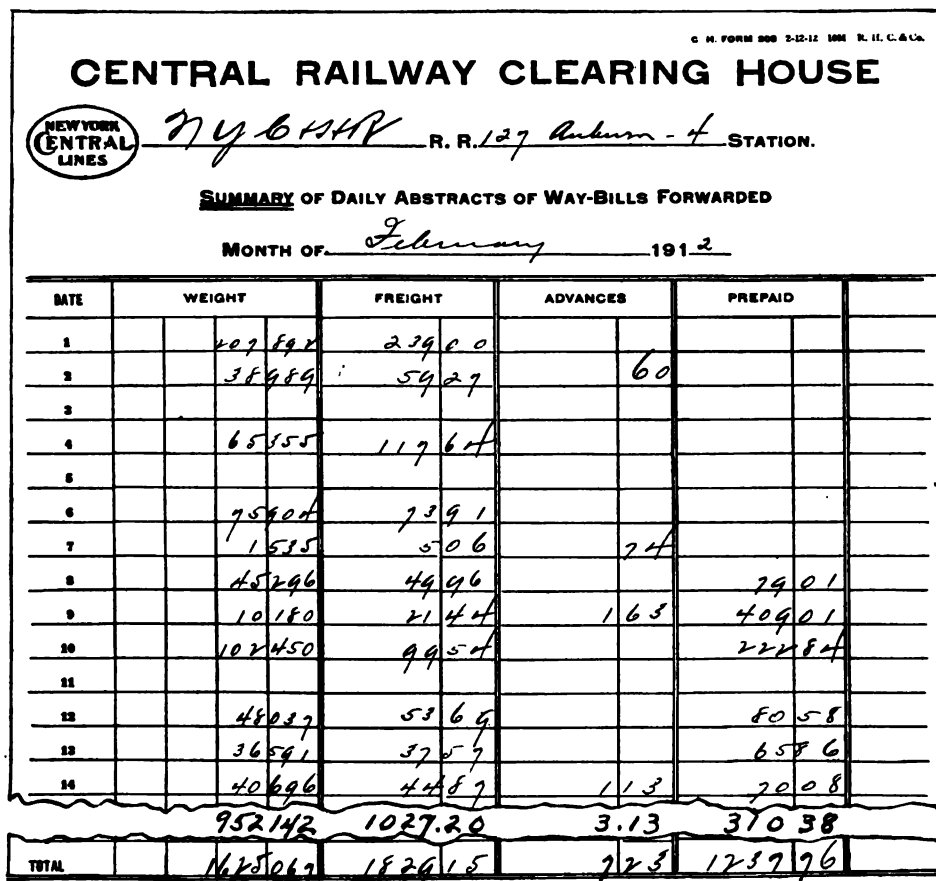 CENTRAL RAILWAY CLEARING HOUSE
NEW YORK
CENTRAL
LINES
N Y C & H R R. R. 127 Auburn - 4 STATION.
SUMMARY OF DAILY ABSTRACTS OF WAY-BILLS FORWARDED
MONTH OF February 1912
DATE WEIGHT FREIGHT ADVANCES PREPAID
1 207 892 239 00
2 38 989 59 27 60
3
4 65 355 117 64
5
6 75 904 73 91
7 1 535 5 06 74
8 45 296 49 96 79 01
9 10 180 21 44 1 63 409 01
10 102 450 99 54 222 84
11
12 48 037 53 69 80 58
13 36 591 37 57 65 86
14 40 696 44 87 1 13 70 08
952142 1027.20 3.13 310 38
TOTAL 1625 067 1829 15 7 23 1237 76